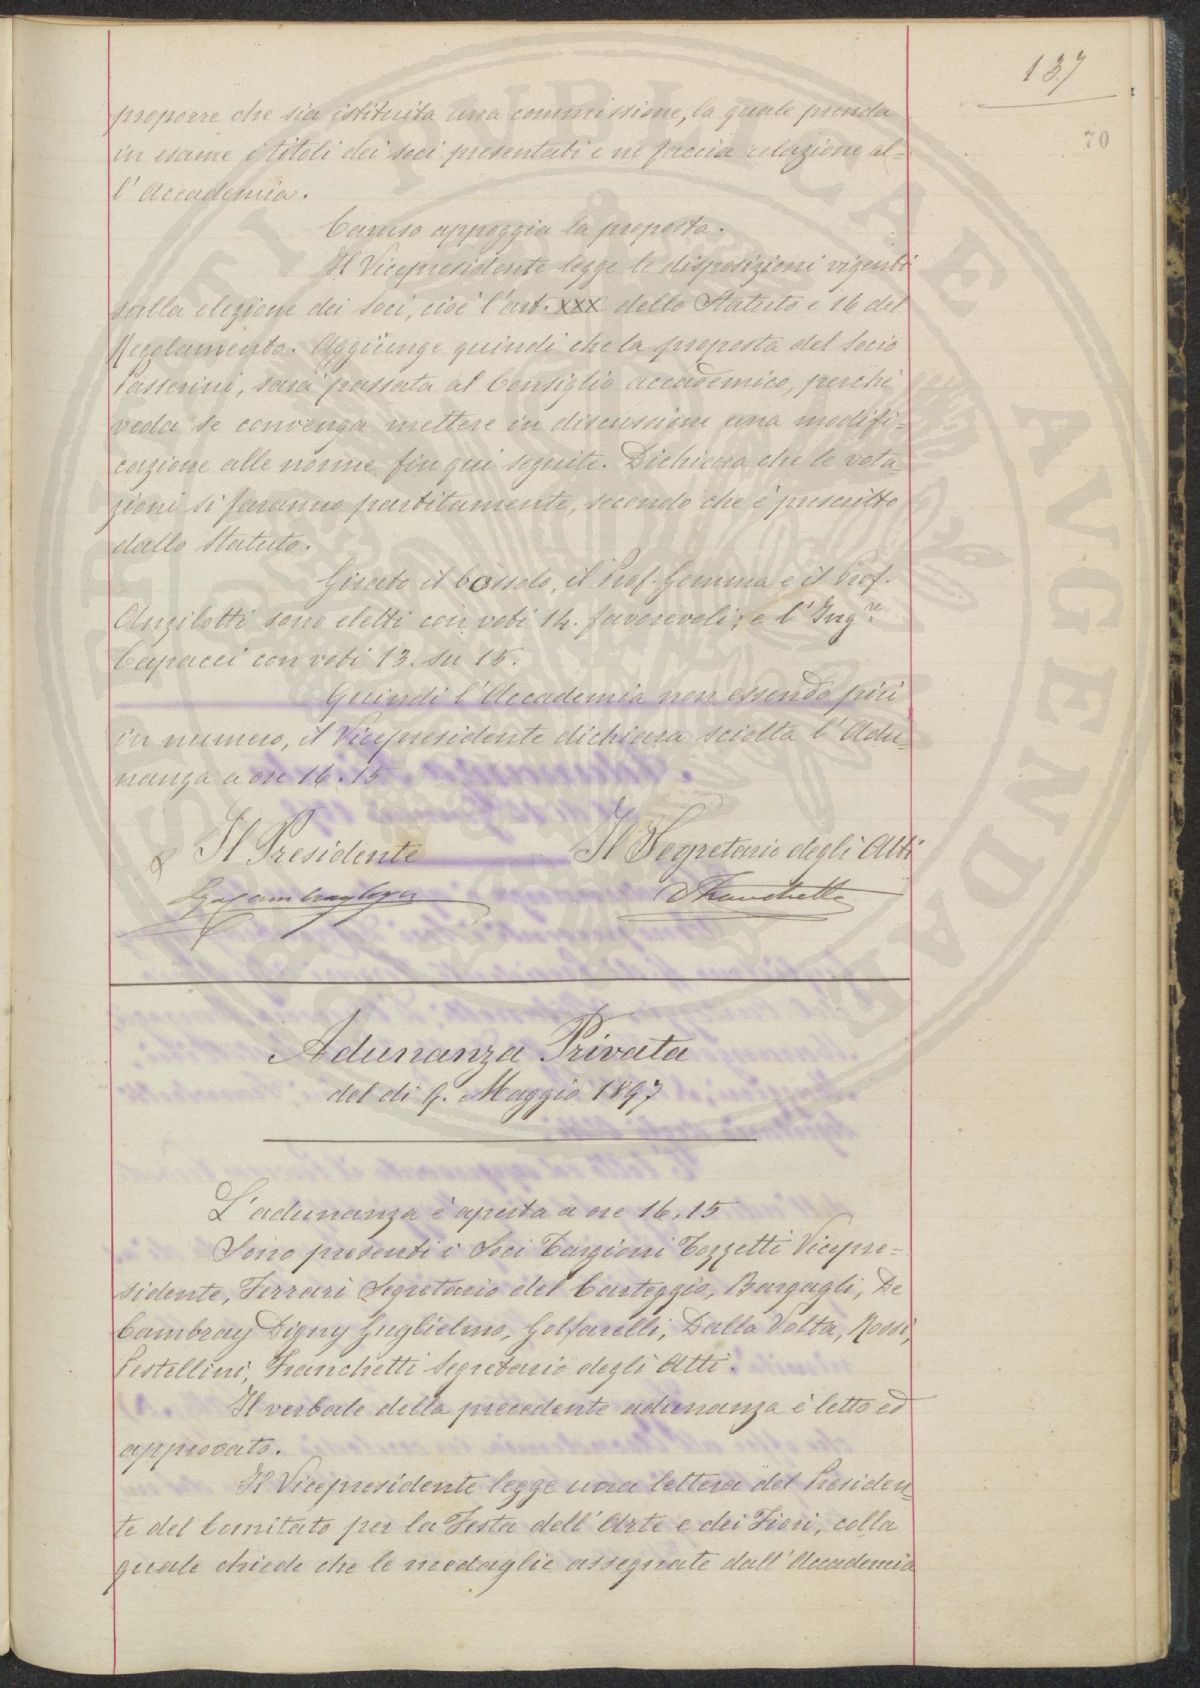 137
70
proporre che sia istituita una commissione, la quale prenda
in esame i titoli dei soci presentati e ne faccia relazione al-
l'Accademia.
Caruso appoggia la proposta.
Il Vicepresidente legge le disposizioni vigenti
sulla elezione dei Soci, cioè l'art. XXX dello Statuto e 16 del
Regolamento. Aggiunge quindi che la proposta del Socio
Passerini, sarà passata al Consiglio accademico, perchè
veda se convenga mettere in discussione una modifi-
cazione alle norme fin qui seguite. Dichiara che le vota-
zioni si faranno partitamente, secondo che è prescritto
dallo Statuto.
Girato il bossolo, il Prof. Gemma e il Prof.
Anzilotti sono eletti con voti 14. favorevoli; e l'Ingre
Capacci con voti 13. su 15.
Quindi l'Accademia non essendo più
in numero, il Vicepresidente dichiara sciolta l'Adu-
nanza a ore 16.15
Il Presidente
Il Segretario degli Atti
Franchetti
Adunanza Privata
del dì 9. Maggio 1897
L'adunanza è aperta a ore 16,15
Sono presenti i Soci Targioni Tozzetti Vicepre-
sidente, Ferrari Segretario del Carteggio, Bargagli, De
Cambray Digny Guglielmo, Golfarelli, Dalla Volta, Rossi,
Pestellini, Franchetti Segretario degli Atti.
Il verbale della precedente adunanza è letto ed
approvato.
Il Vicepresidente legge una lettera del Presiden-
te del Comitato per la Festa dell'Arte e dei Fiori, colla
quale chiede che le medaglie assegnate dall'Accademia